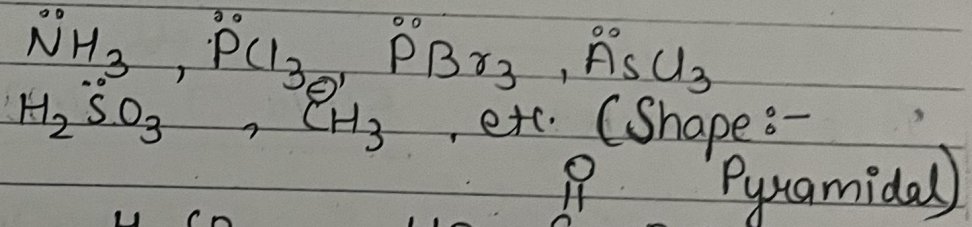 N̈H₃, P̈Cl₃, P̈Br₃, ÄsCl₃
H₂S̈O₃, C⊖H₃, etc. (Shape:-
Pyramidal)
O